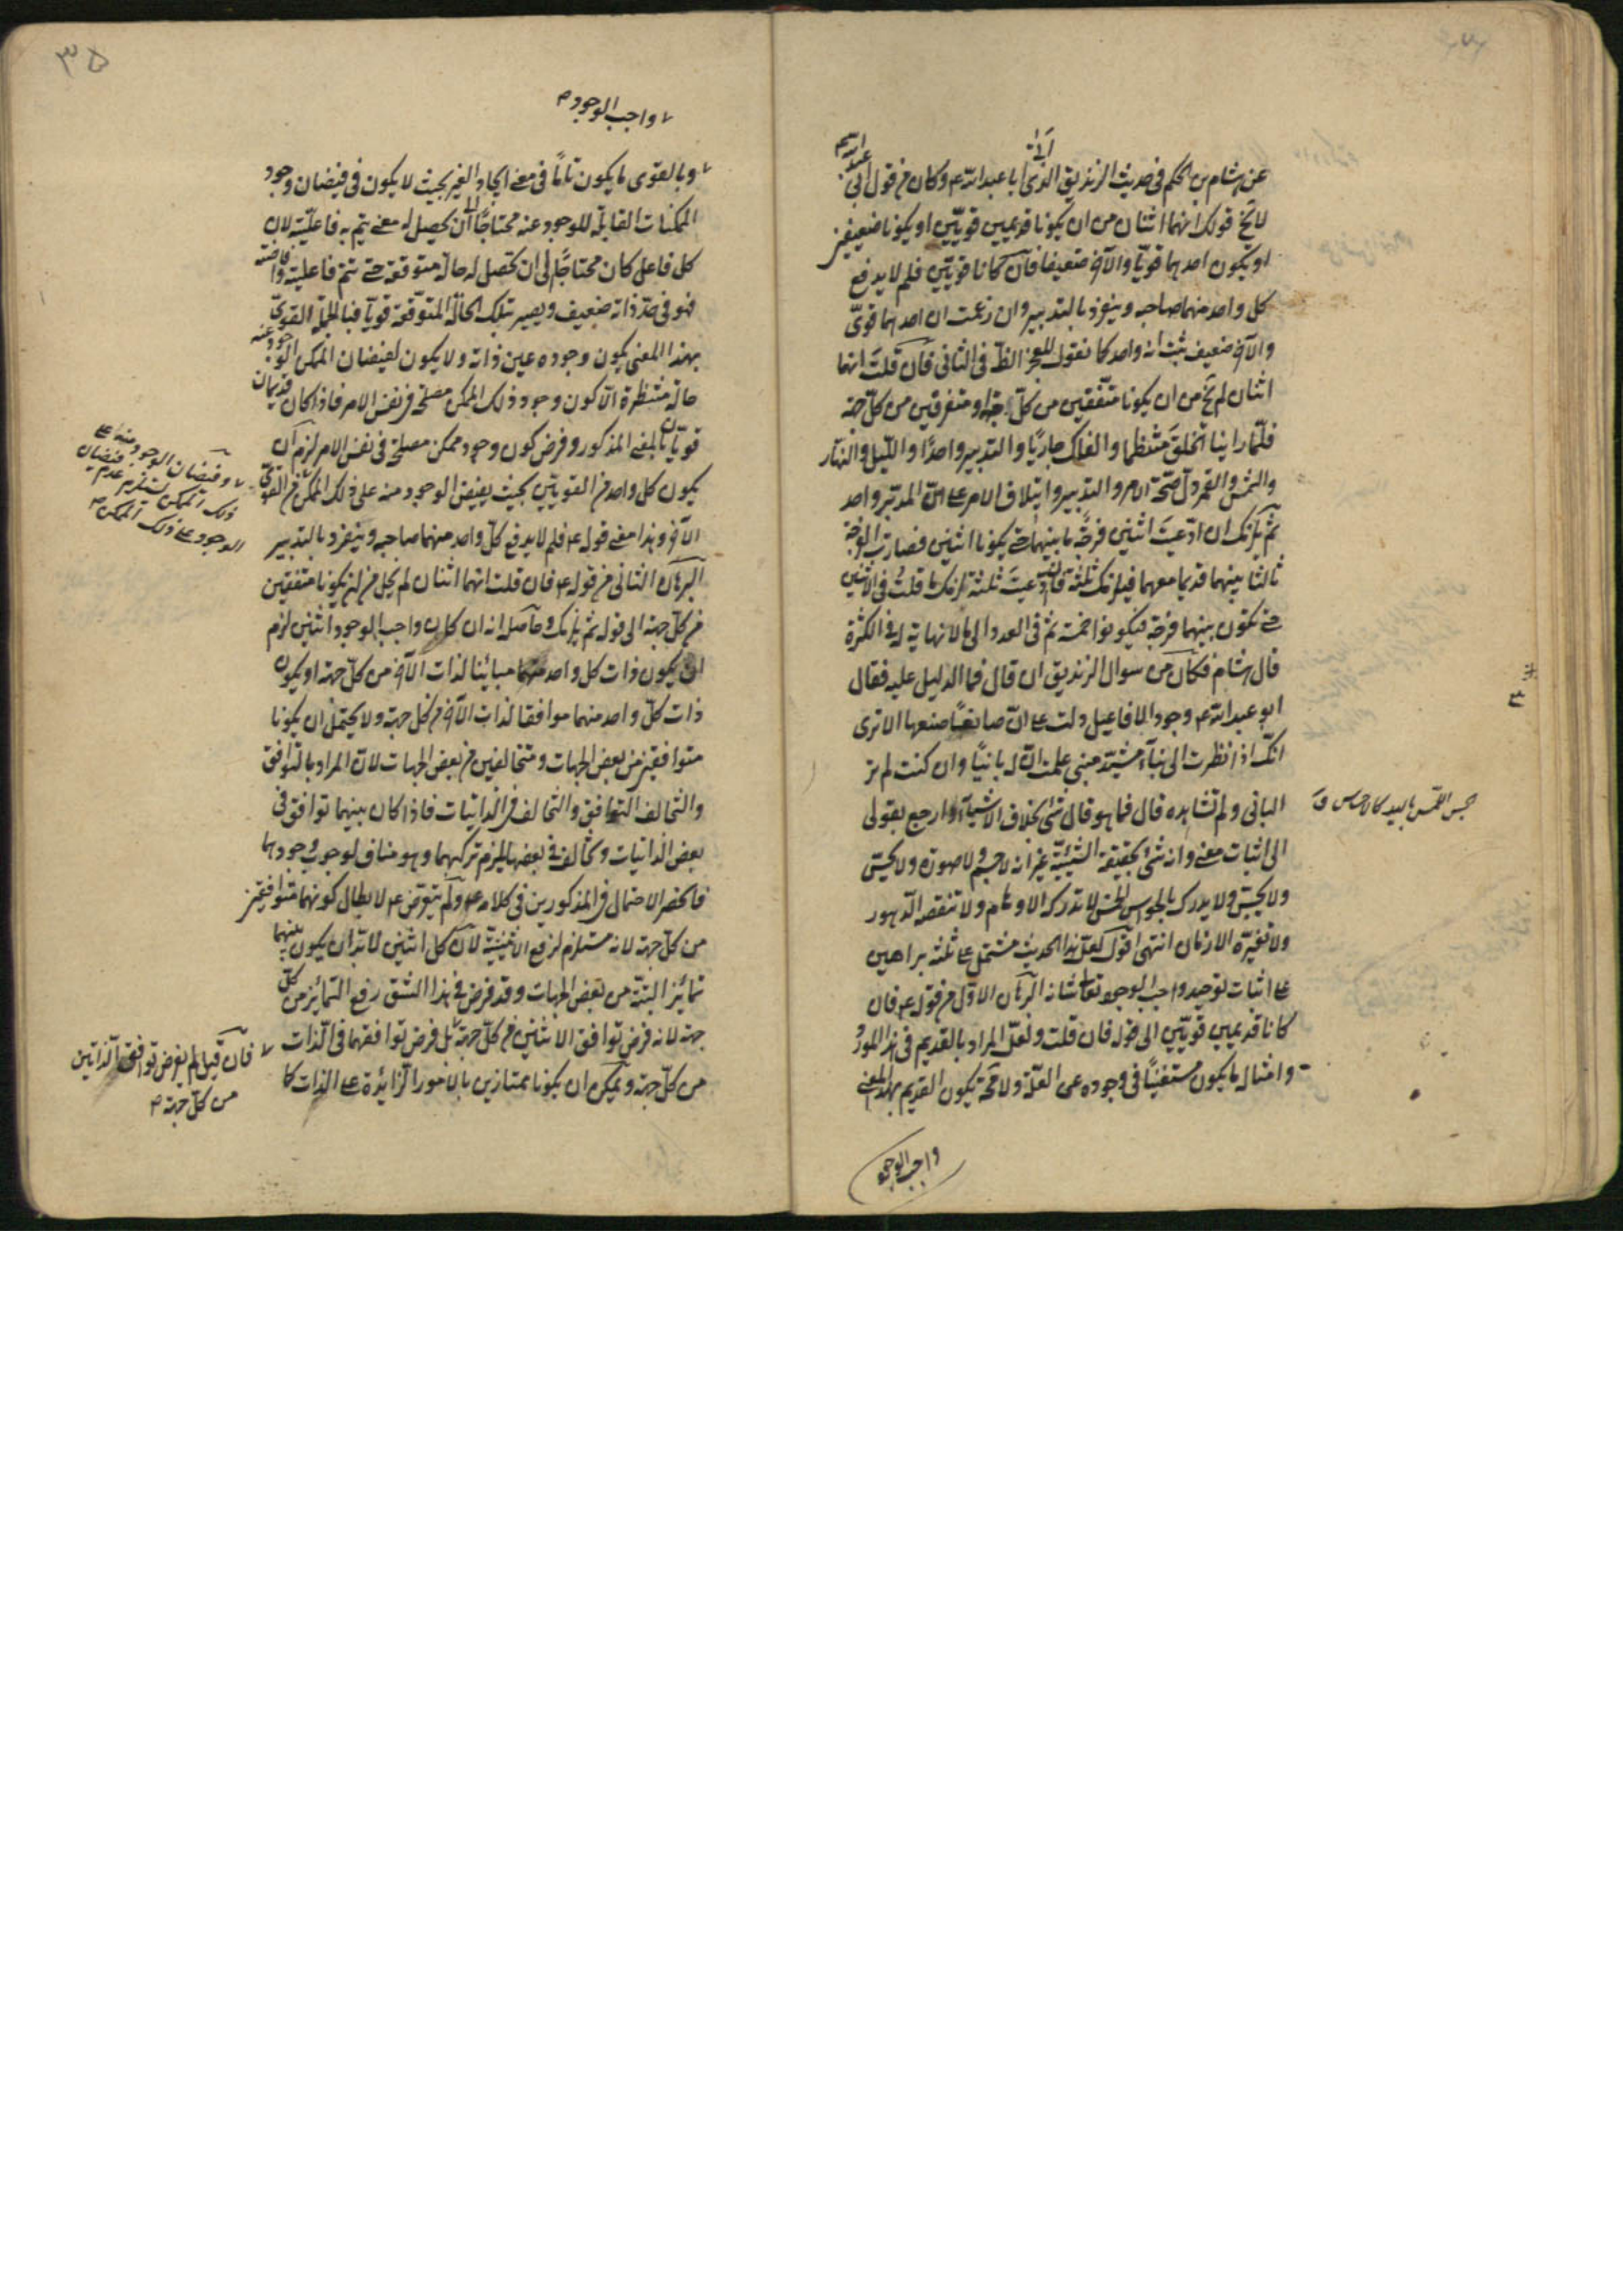 عن هشام بن الحكم فى حديث الزنديق الذى اتى ابا عبد الله ع وكان من قول ابى عبد الله ع
لا يخ قولك انهما اثنان من ان يكونا قديمين قويين او يكونا ضعيفين
او يكون احدهما قويا والآخر ضعيفا فان كانا قويين فلم لا يدفع
كل واحد منهما صاحبه وينفرد بالتدبير وان زعمت ان احدهما قوى
والآخر ضعيف ثبت انه واحد كما نقول للعجز الظ فى الثانى فان قلت انهما
اثنان لم يخ من ان يكونا متفقين من كل جهة او متفرقين من كل جهة
فلما راينا الخلق منتظما والفلك جاريا والتدبير واحدا والليل والنهار
والشمس والقمر دل صحة الامر والتدبير وايتلاف الامر على ان المدبر واحد
ثم يلزمك ان ادعيت اثنين فرجة ما بينهما حتى يكونا اثنين فصارت الفرجة
ثالثا بينهما قديما معهما فيلزمك ثلثة فان ادعيت ثلثة لزمك ما قلت فى الاثنين
حتى تكون بينهما فرجة فيكونوا خمسة ثم فى العدد الى ما لا نهاية له فى الكثرة
قال هشام فكان من سوال الزنديق ان قال فما الدليل عليه فقال
ابو عبد الله ع وجود الافاعيل دلت على ان صانعا صنعها الا ترى
انك اذا نظرت الى بناء مشيد مبنى علمت ان له بانيا وان كنت لم تر
البانى ولم تشاهده قال فما هو قال شئ بخلاف الاشياء ارجع بقولى
الى اثبات معنى وانه شئ بحقيقة الشيئية غير انه لا جسم ولا صورة ولا يحس
ولا يجس ولا يدرك بالحواس الخمس لا تدركه الاوهام ولا تنقصه الدهور
ولا تغيره الازمان انتهى اقول لعل هذا الحديث مشتمل على ثلثة براهين
على اثبات توحيد واجب الوجود تعالى شانه البرهان الاول من قوله ع فان
كانا قديمين قويين الى قوله فان قلت ولعل المراد بالقديم فى هذا المورد
وامثاله ما يكون مستغنيا فى وجوده عن العلة ولا محة يكون القديم بهذا المعنى
واجب الوجود
واجب الوجود
وبالقوى ما يكون تاما فى معنى ايجاد الغير بحيث لا يكون فى فيضان وجود
الممكنات القابلة للوجود عنه محتاجا الى ان يحصل له معنى يتم به فاعليته لان
كل فاعل كان محتاجا الى ان تحصل له حالة متوقعة حتى تتم فاعليته وافاضته
فهو فى حد ذاته ضعيف ويصير بتلك الحالة المتوقعة قويا فبالجملة القوى
بهذا المعنى يكون وجوده عين ذاته ولا يكون لفيضان الممكن الوجود عنه
حالة منتظرة الا كون وجود ذلك الممكن مصلحة فى نفس الامر فاذا كان قديمان
قويان بالمعنى المذكور وفرض كون وجود ممكن مصلحة فى نفس الامر لزم ان
يكون كل واحد من القويين بحيث يفيض الوجود منه على ذلك الممكن من القوى
الآخر وهذا معنى قوله ع فلم لا يدفع كل واحد منهما صاحبه وينفرد بالتدبير
البرهان الثانى من قوله ع فان قلت انهما اثنان لم يخل من ان يكونا متفقين
من كل جهة الى قوله ثم يلزمك وحاصله انه ان كان واجب الوجود اثنين لزم
ان يكون ذات كل واحد منهما مباينا لذات الآخر من كل جهة او يكون
ذات كل واحد منهما موافقا لذات الآخر من كل جهة ولا يحتمل ان يكونا
متوافقين من بعض الجهات ومتخالفين من بعض الجهات لان المراد بالتوافق
والتخالف التوافق والتخالف فى الذاتيات فاذا كان بينهما توافق فى
بعض الذاتيات وتخالف فى بعضها يلزم تركبهما وهو مناف لوجوب وجودهما
فانحصر الاحتمال فى المذكورين فى كلامه ع ولم يتعرض ع لابطال كونهما متوافقين
من كل جهة لانه مستلزم لرفع الاثنينية لان كل اثنين لا بد ان يكون بينهما
تمايز البتة من بعض الجهات وقد فرض فى هذا الشق رفع التمايز من كل
جهة لانه فرض توافق الاثنين من كل جهة بل فرض توافقهما فى الذات
من كل جهة ويمكن ان يكونا ممتازين بالامور الزائدة على الذات كما
وفيضان الوجود منه على
ذلك الممكن يستلزم عدم فيضان
الوجود على ذلك الممكن
فان قيل لم يفرض توافق الذاتين
من كل جهة
٣٥